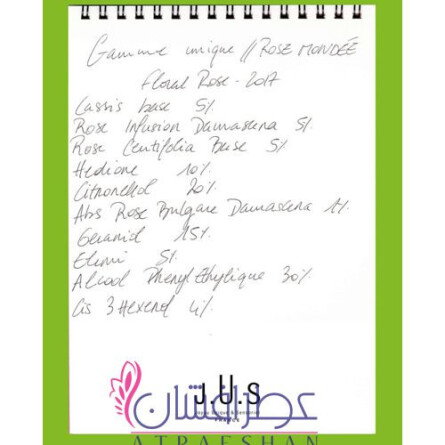 Gamme unique // ROSE MONDÉE
Floral Rose - 2017
Cassis base 5%
Rose Infusion Damascena 5%
Rose Centifolia Base 5%
Hedione 10%
Citronellol 20%
Abs Rose Bulgare Damascena 1%
Geraniol 15%
Elemi 5%
Alcool Phenyl Ethylique 30%
Cis 3 Hexenol 4%
J.U.S
عطرافشان
ATRAFSHAN